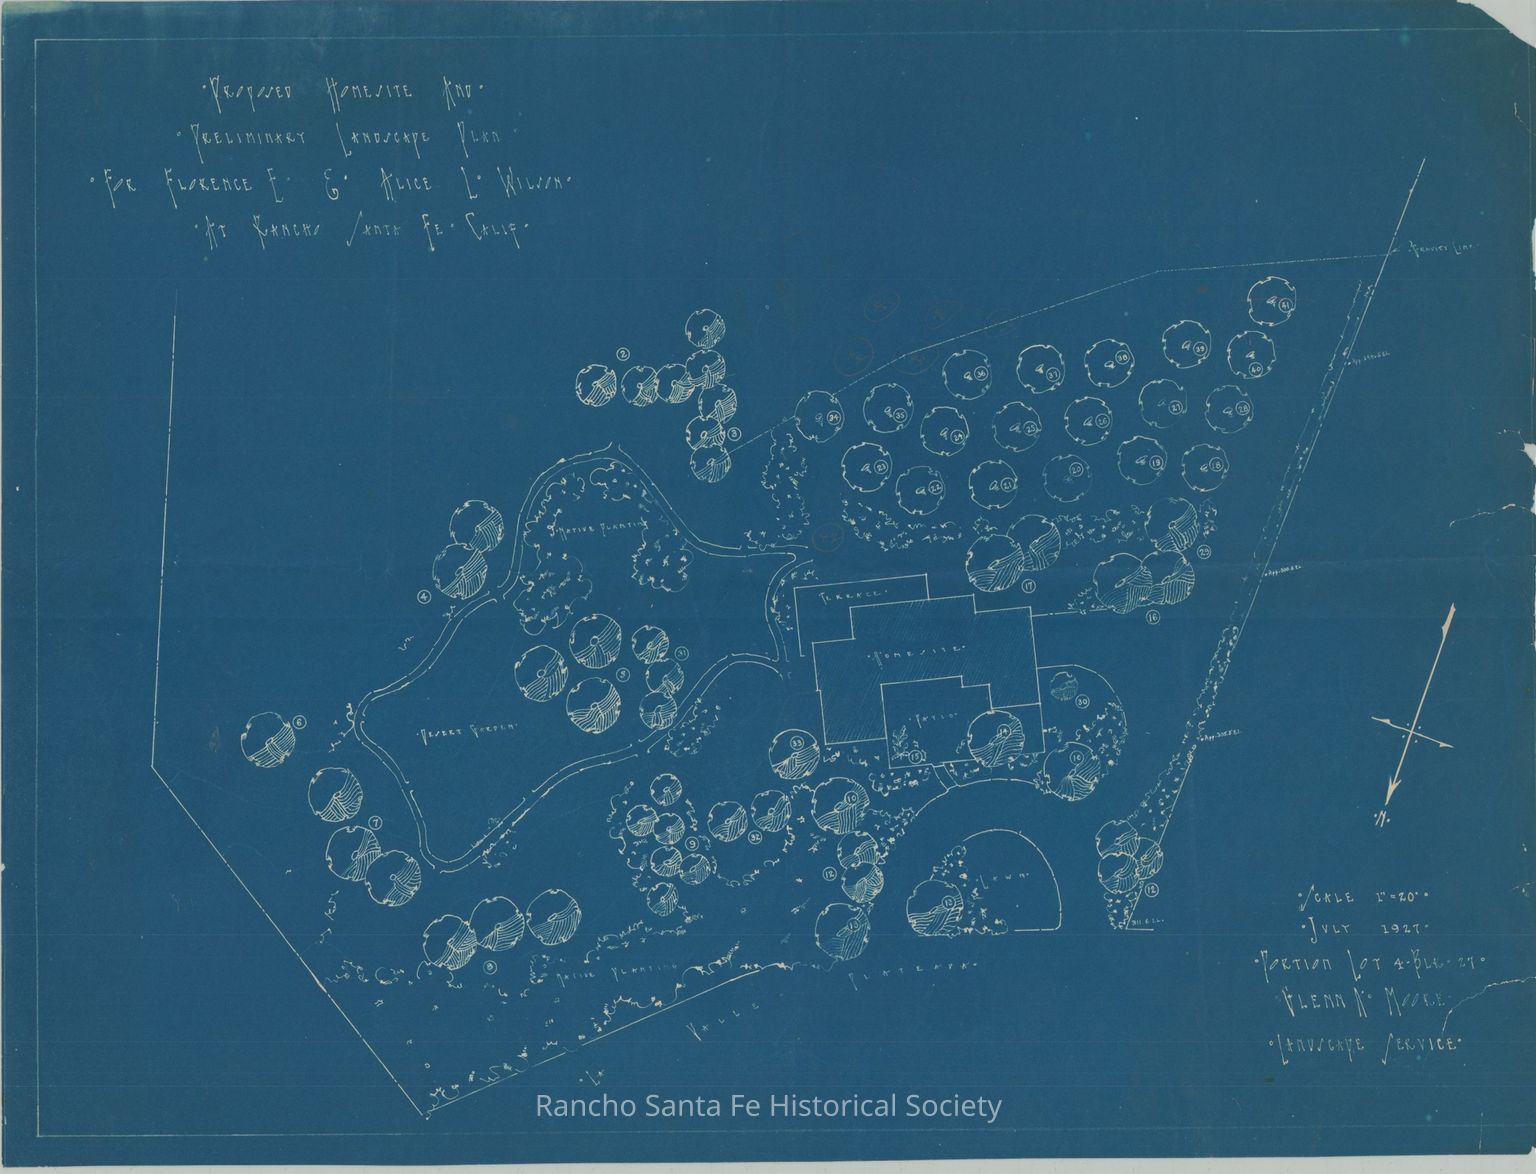 ·Proposed Homesite And·
·Preliminary Landscape Plan
·For Florence E· & Alice L· Wilson·
·At Rancho Santa Fe· Calif·
41
39
38
40
37
36
2
27
28
35
34
26
25
24
3
19
18
20
23
21
22
·Native Planting
29
17
4
16
·Terrace·
·Homesite·
31
5
30
·Desert Garden·
·Patio·
6
14
33
15
10
7
32
9
12
12
·Lawn·
13
8
·Native Planting
Plateada·
Valle
·La
·N·
·Scale 1"=20'·
·July 1927·
·Portion Lot 4·Blk·27·
·Glenn A· Moore·
·Landscape Service·
Rancho Santa Fe Historical Society